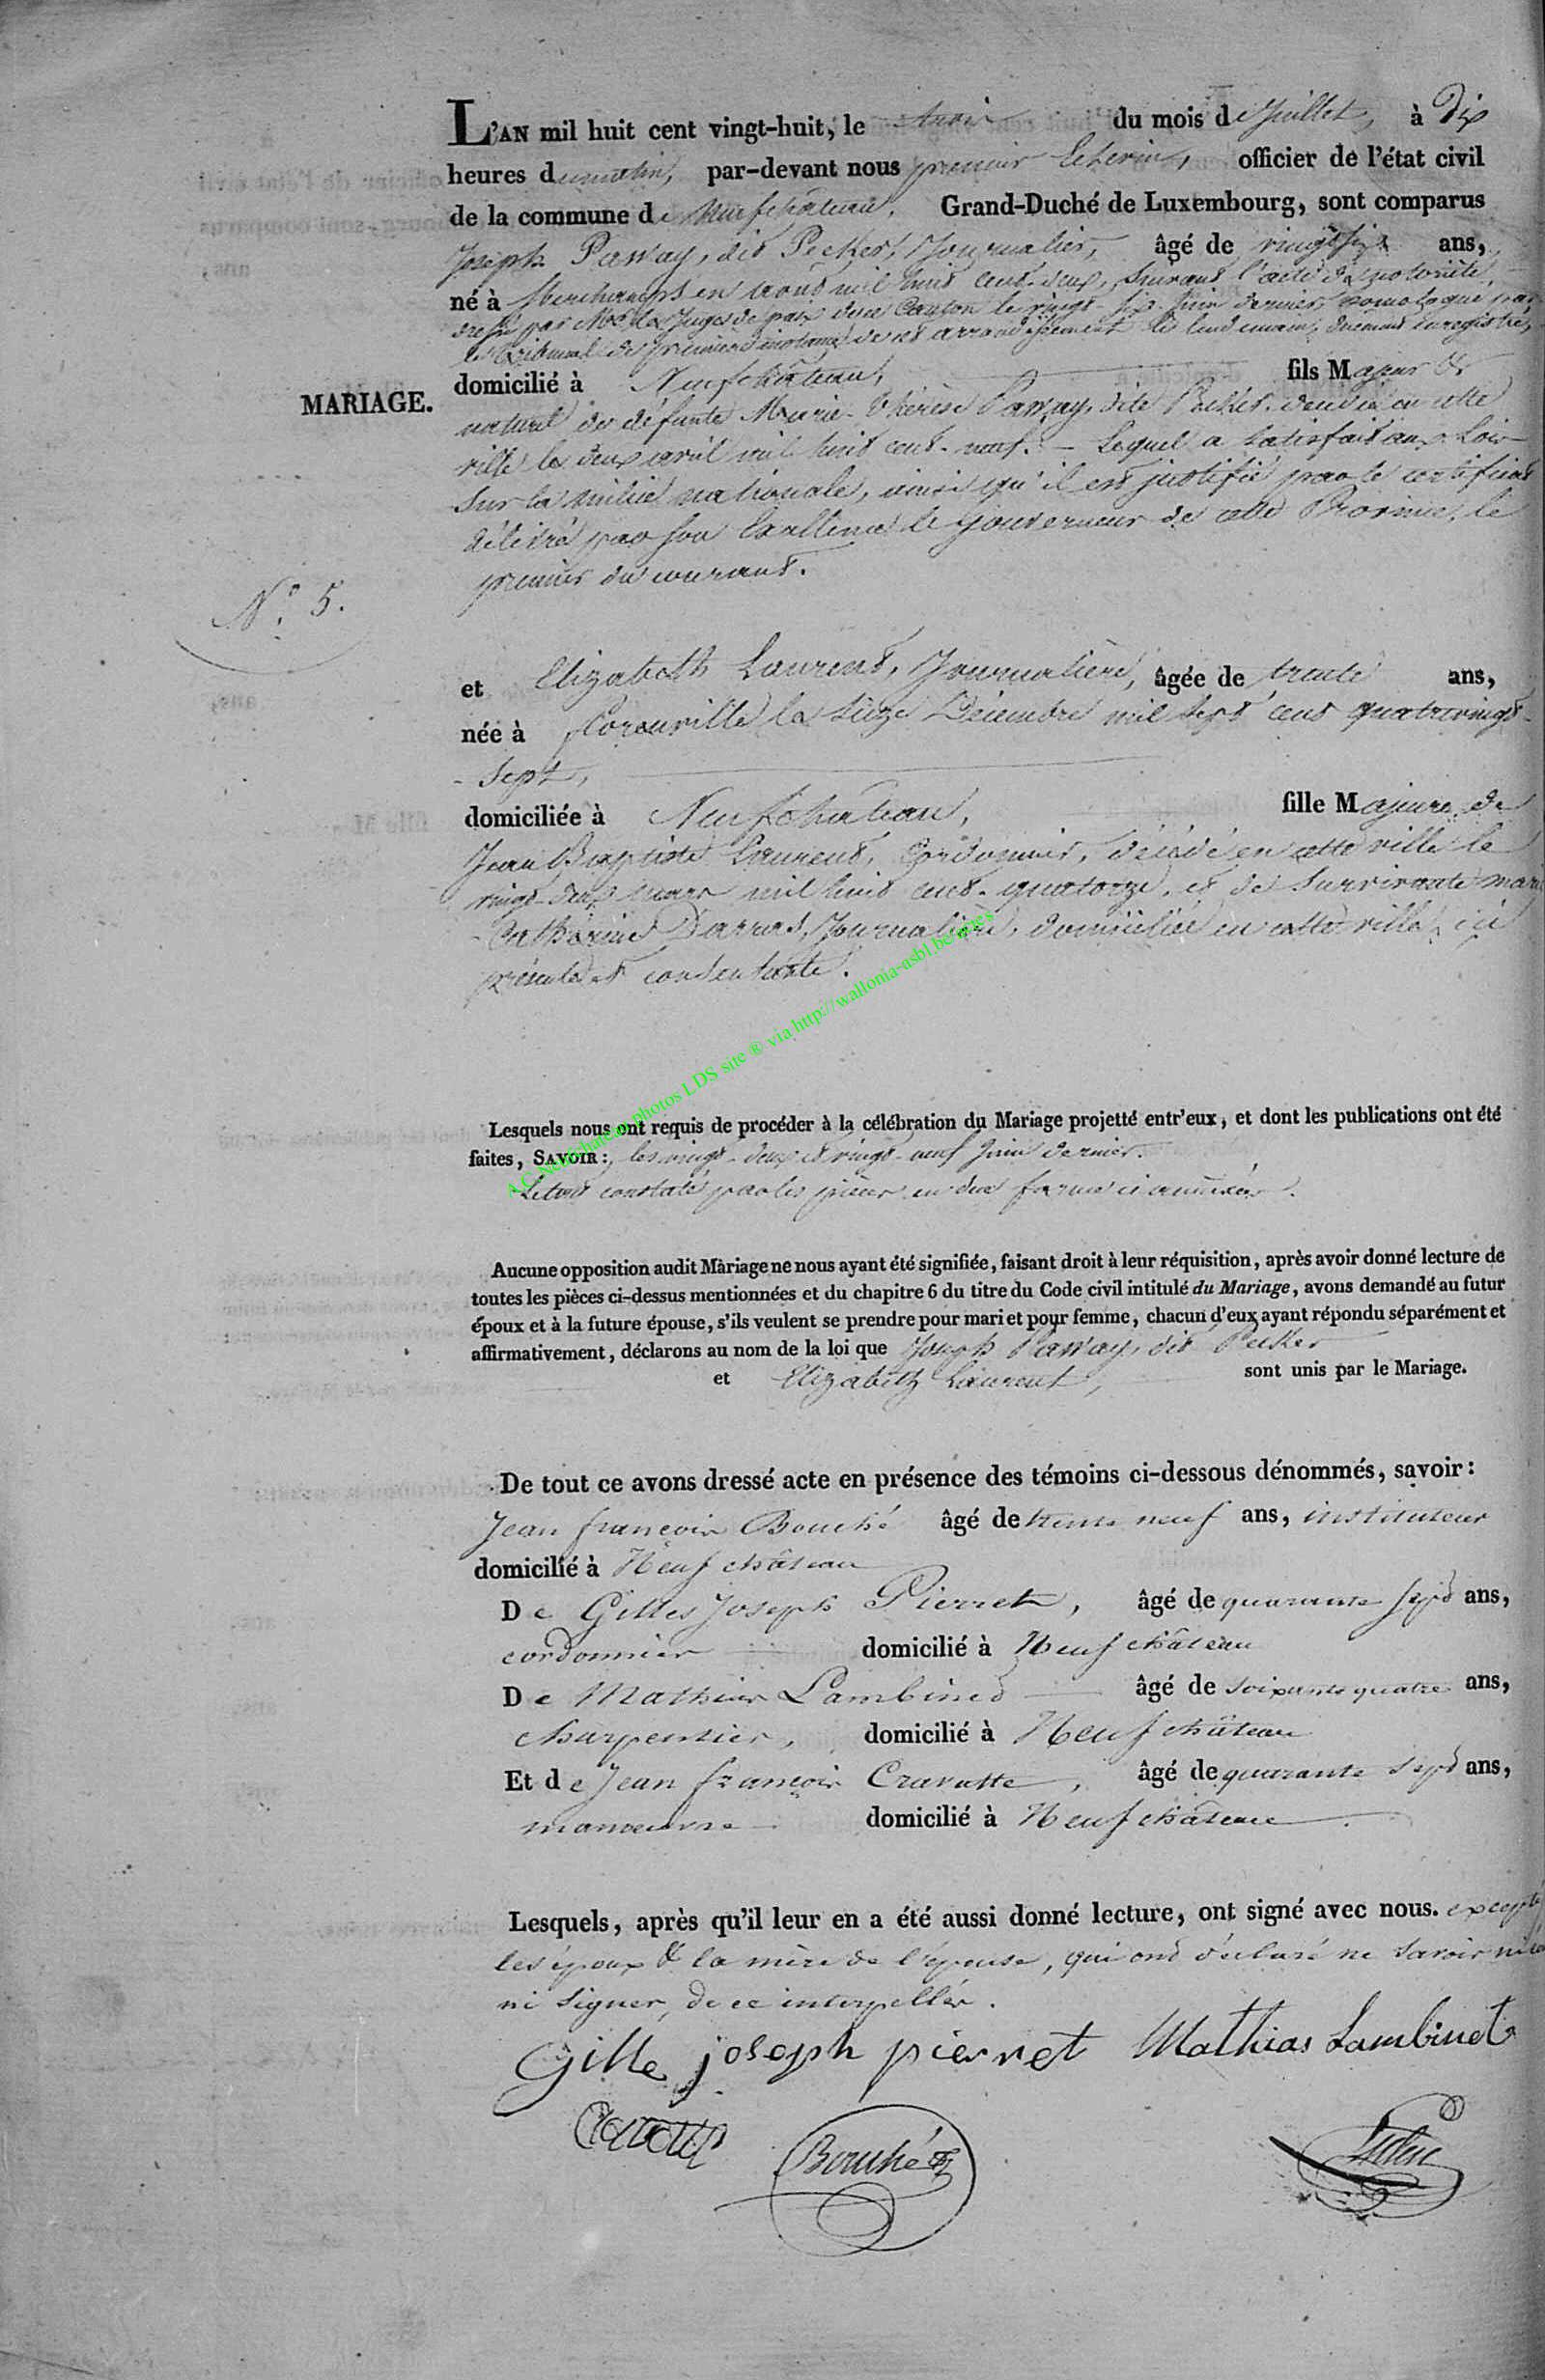 L'AN mil huit cent vingt-huit, le trois du mois de Juillet, à Dix
heures du matin, par-devant nous premier Echevin, officier de l'état civil
de la commune de Neufchâteau, Grand-Duché de Luxembourg, sont comparus
Joseph Paway, dit Pecker, Journalier, âgé de vingt six ans,
né à en août mil huit cent-deux, suivant l'acte de notoriété,
dressé par Mr le Juge de paix de ce Canton le vingt-six Juin dernier, homologué par
le tribunal de première instance de cet arrondissement le lendemain, dûment enregistré,
domicilié à Neufchâteau, fils Majeur &
MARIAGE.
naturel de défunte Marie-Thérèse Paway, dite Pecker, décédée en cette
ville le deux avril mil huit cent-neuf. — Lequel a satisfait aux Lois
sur la milice nationale, ainsi qu'il est justifié par le certificat
délivré par Son Excellence le Gouverneur de cette Province, le
premier du courant.
N.° 5.
et Elizabeth Laurent, Journalière, âgée de trente ans,
née à florenville le seize Décembre mil sept cent quatrevingt-
-sept,
domiciliée à Neufchâteau, fille Majeure de
Jean Baptiste Laurent, Cordonnier, décédé en cette ville le
vingt-deux mars mil huit cent-quatorze, et de survivante marie
-Catherine Darras, Journalière, domiciliée en cette ville, ici
présente et consentante.
A.C. Neufchateau photos LDS site ® via http://wallonia-asbl.be/actes
Lesquels nous ont requis de procéder à la célébration du Mariage projetté entr'eux, et dont les publications ont été
faites, SAVOIR: les vingt-deux et vingt-neuf Juin dernier.
Le tout constaté par les pièces en due forme ci annexées.
Aucune opposition audit Mariage ne nous ayant été signifiée, faisant droit à leur réquisition, après avoir donné lecture de
toutes les pièces ci-dessus mentionnées et du chapitre 6 du titre du Code civil intitulé du Mariage, avons demandé au futur
époux et à la future épouse, s'ils veulent se prendre pour mari et pour femme, chacun d'eux ayant répondu séparément et
affirmativement, déclarons au nom de la loi que Joseph Paway, dit Pecker
et Elizabeth Laurent, sont unis par le Mariage.
De tout ce avons dressé acte en présence des témoins ci-dessous dénommés, savoir:
Jean françois Bouché âgé de trente neuf ans, instituteur
domicilié à Neufchâteau
De Gilles Joseph Pierret, âgé de quarante sept ans,
cordonnier domicilié à Neufchâteau
De Mathias Lambinet âgé de soixante quatre ans,
charpentier, domicilié à Neufchâteau
Et de Jean françois Cravatte, âgé de quarante sept ans,
manoeuvre domicilié à Neufchâteau
Lesquels, après qu'il leur en a été aussi donné lecture, ont signé avec nous. excepté
les époux & la mère de l'épouse, qui ont déclaré ne savoir
ni signer, de ce interpellés.
Gille joseph pierret Mathias Lambinet
Bouché